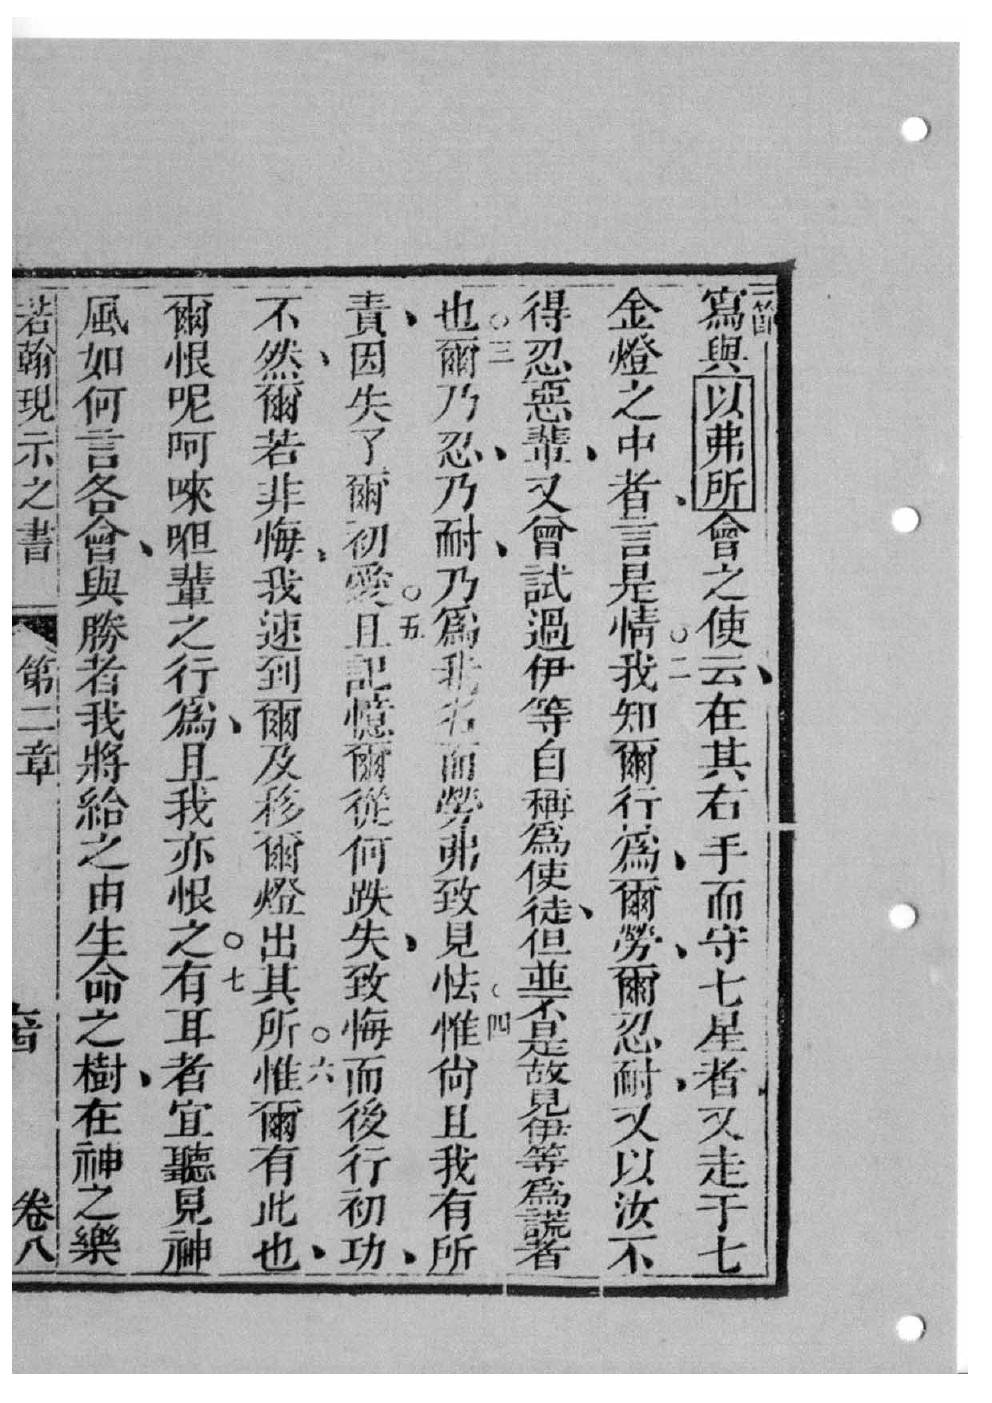 一節
寫與以弗所會之使、云在其右手而守七星者又走于七
金燈之中者、言是情○二我知爾行為、爾勞、爾忍耐、又以汝不
得忍惡輩、又曾試過伊等自稱為使徒、但並不是故見伊等為謊者
也○三爾乃忍、乃耐、乃為我名而勞弗致見怯○四惟尙且我有所
責、因失了爾初愛○五且記憶爾從何跌失、致悔而後行初功、
不然、爾若非悔、我速到爾及移爾燈出其所○六惟爾有此也、
爾恨呢呵唻呾輩之行為、且我亦恨之○七有耳者宜聽見神
風如何言各會、與勝者我將給之由生命之樹、在神之樂
若翰現示之書 第二章 卷八